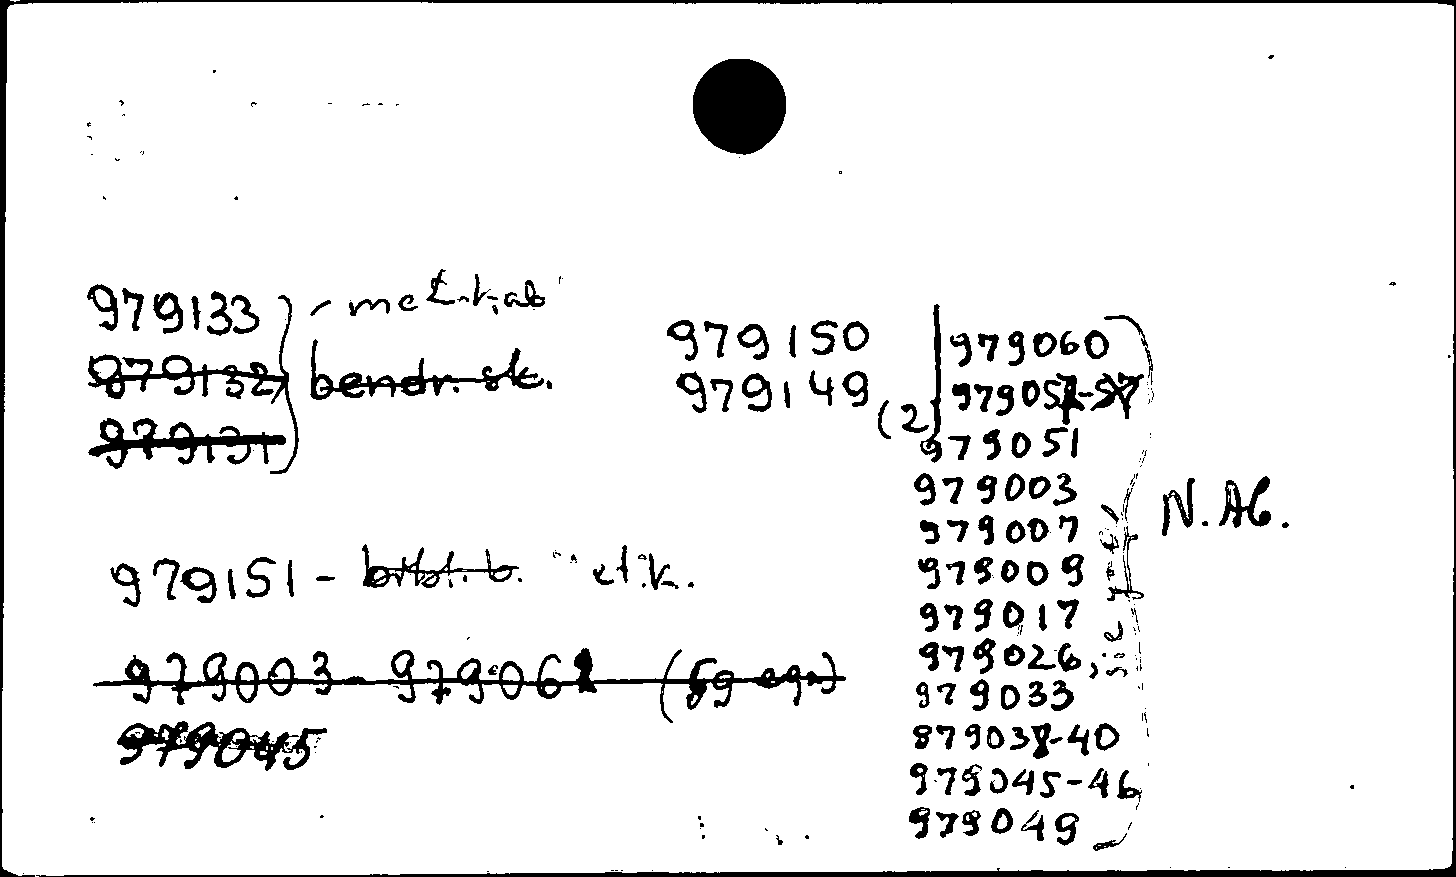 979133 - met. kab
979132 bendr. sk.
979131
979151 - bibl. b. et.k.
979003 - 979061 (59 egz)
979045
979150
979149 (2)
979060
979051
979003
979007
979009
979017
979026, sie yra
979033
879038-40
979045-46
979049
N. Ab.